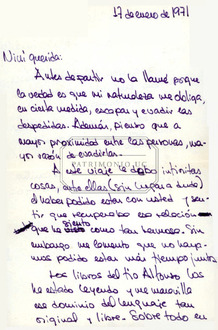 17 de enero de 1971
Nini querida:
Antes de partir no la llamé porque
la verdad es que mi naturaleza me obliga,
en cierta medida, escapar y evadir las
despedidas. Además, pienso que a
mayor proximidad entre las personas, ma-
yor razón de evadirlas.
A este viaje le debo infinitas
cosas, entre ellas (sin lugar a duda)
el haber podido estar con usted y sen-
tir que recuperaba esa relación
que siento como tan hermosa. Sin
embargo me lamento que no haya-
mos podido estar más tiempo juntos.
Los libros del tío Alfonso los
he estado leyendo y me maravilla
ese dominio del lenguaje tan
original y libre. Sobre todo en
PATRIMONIO UC